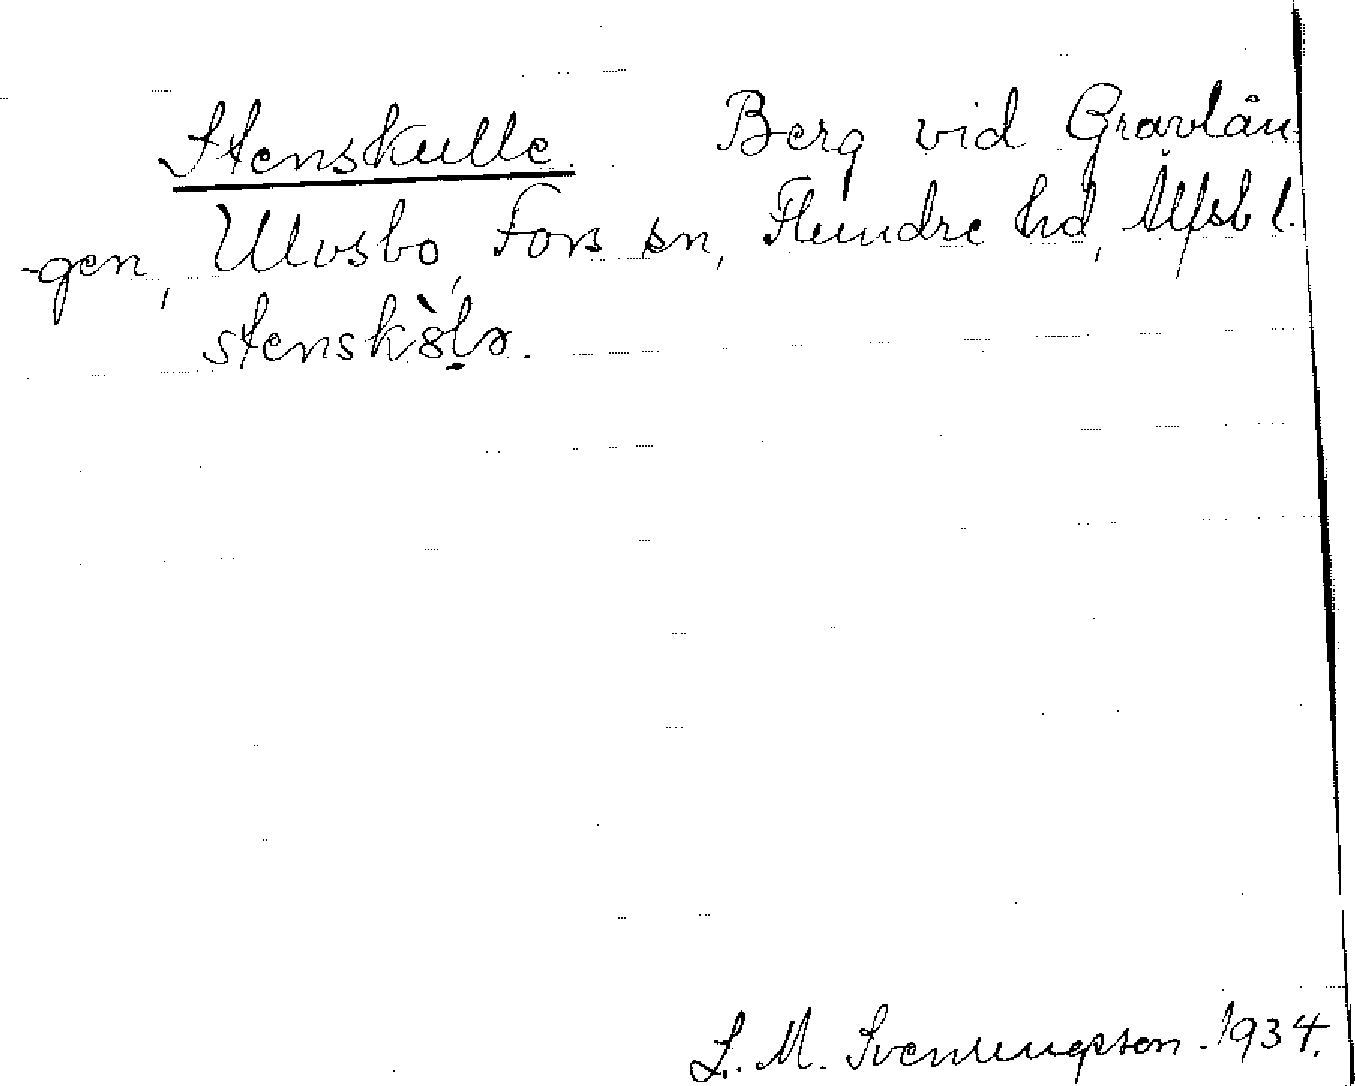 Stenskulle. Berg vid Gravlån
-gen, Ulvsbo, Fors sn, Flundre hd, Älfsb l.
stenskòlə.
L. M. Svenungsson. 1934.